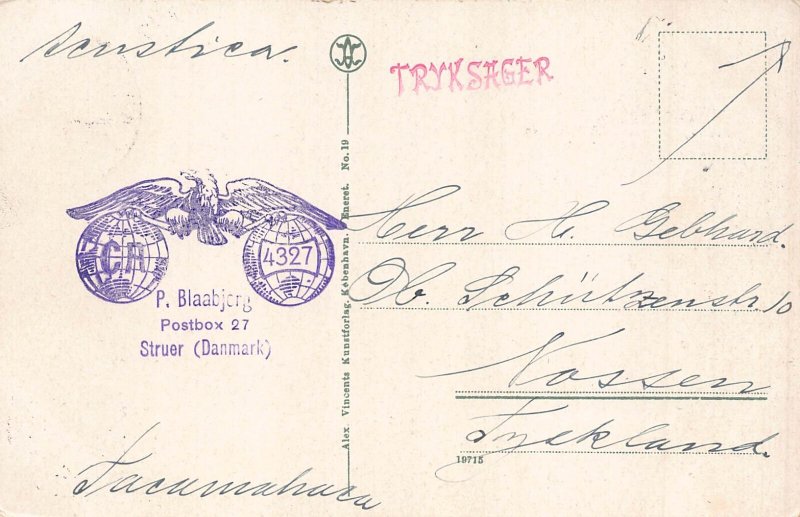 Scustica.
TRYKSAGER
CA
4327
P. Blaabjerg
Postbox 27
Struer (Danmark)
Tacamahaca
Alex Vincents Kunstforlag. København. Eneret. No. 19
Herr H. Gebhard.
Ob. Schützenstr. 10
Nossen
Tyskland.
19715